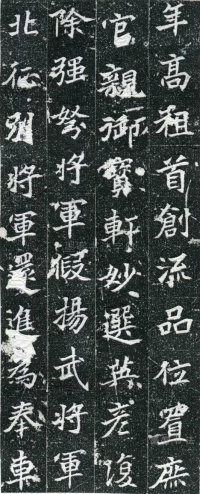 年髙祖首創流品位置庶
官親御寶軒妙選英彥復
除强弩將軍假揚武將軍
北征別將軍還進為奉車